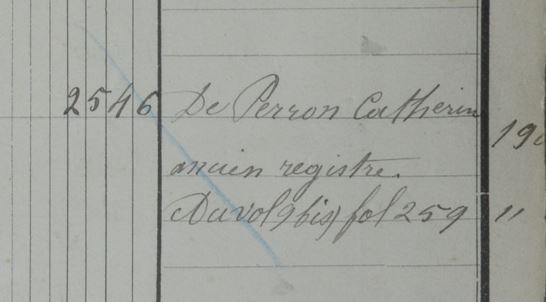 2546 De Perron Catherin
190
ancien registre.
Du vol 9 bis) fol 259 "